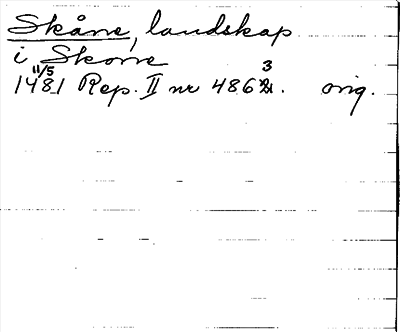 Skåne, landskap
i Skone
11/5
1481 Rep. II nr 4863. orig.